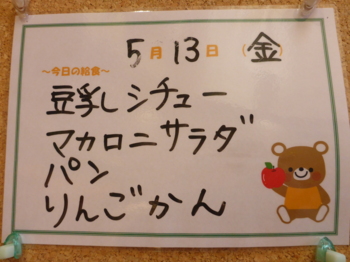 5月13日(金)
～今日の給食～
豆乳シチュー
マカロニサラダ
パン
りんごかん